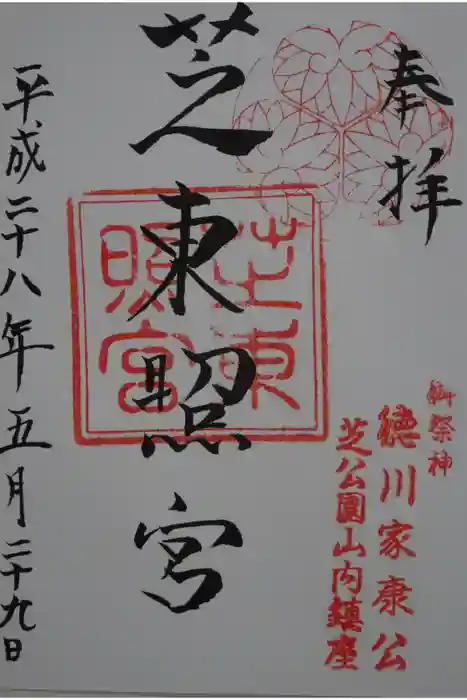 奉拝
御祭神
徳川家康公
芝公園山内鎮座
芝東照宮
芝東照宮
平成二十八年五月二十九日